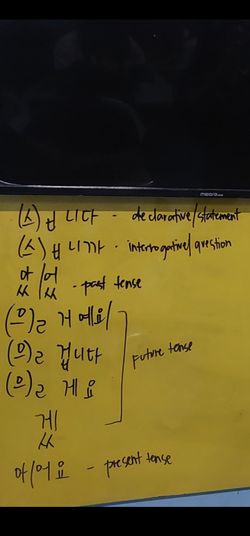 mecoa
(스)ㅂ니다 - declarative/statement
(스)ㅂ니까 - interrogative/question
았/었 - past tense
(으)ㄹ 거예요/
(으)ㄹ 겁니다
(으)ㄹ 게요
겠
future tense
아/어요 - present tense